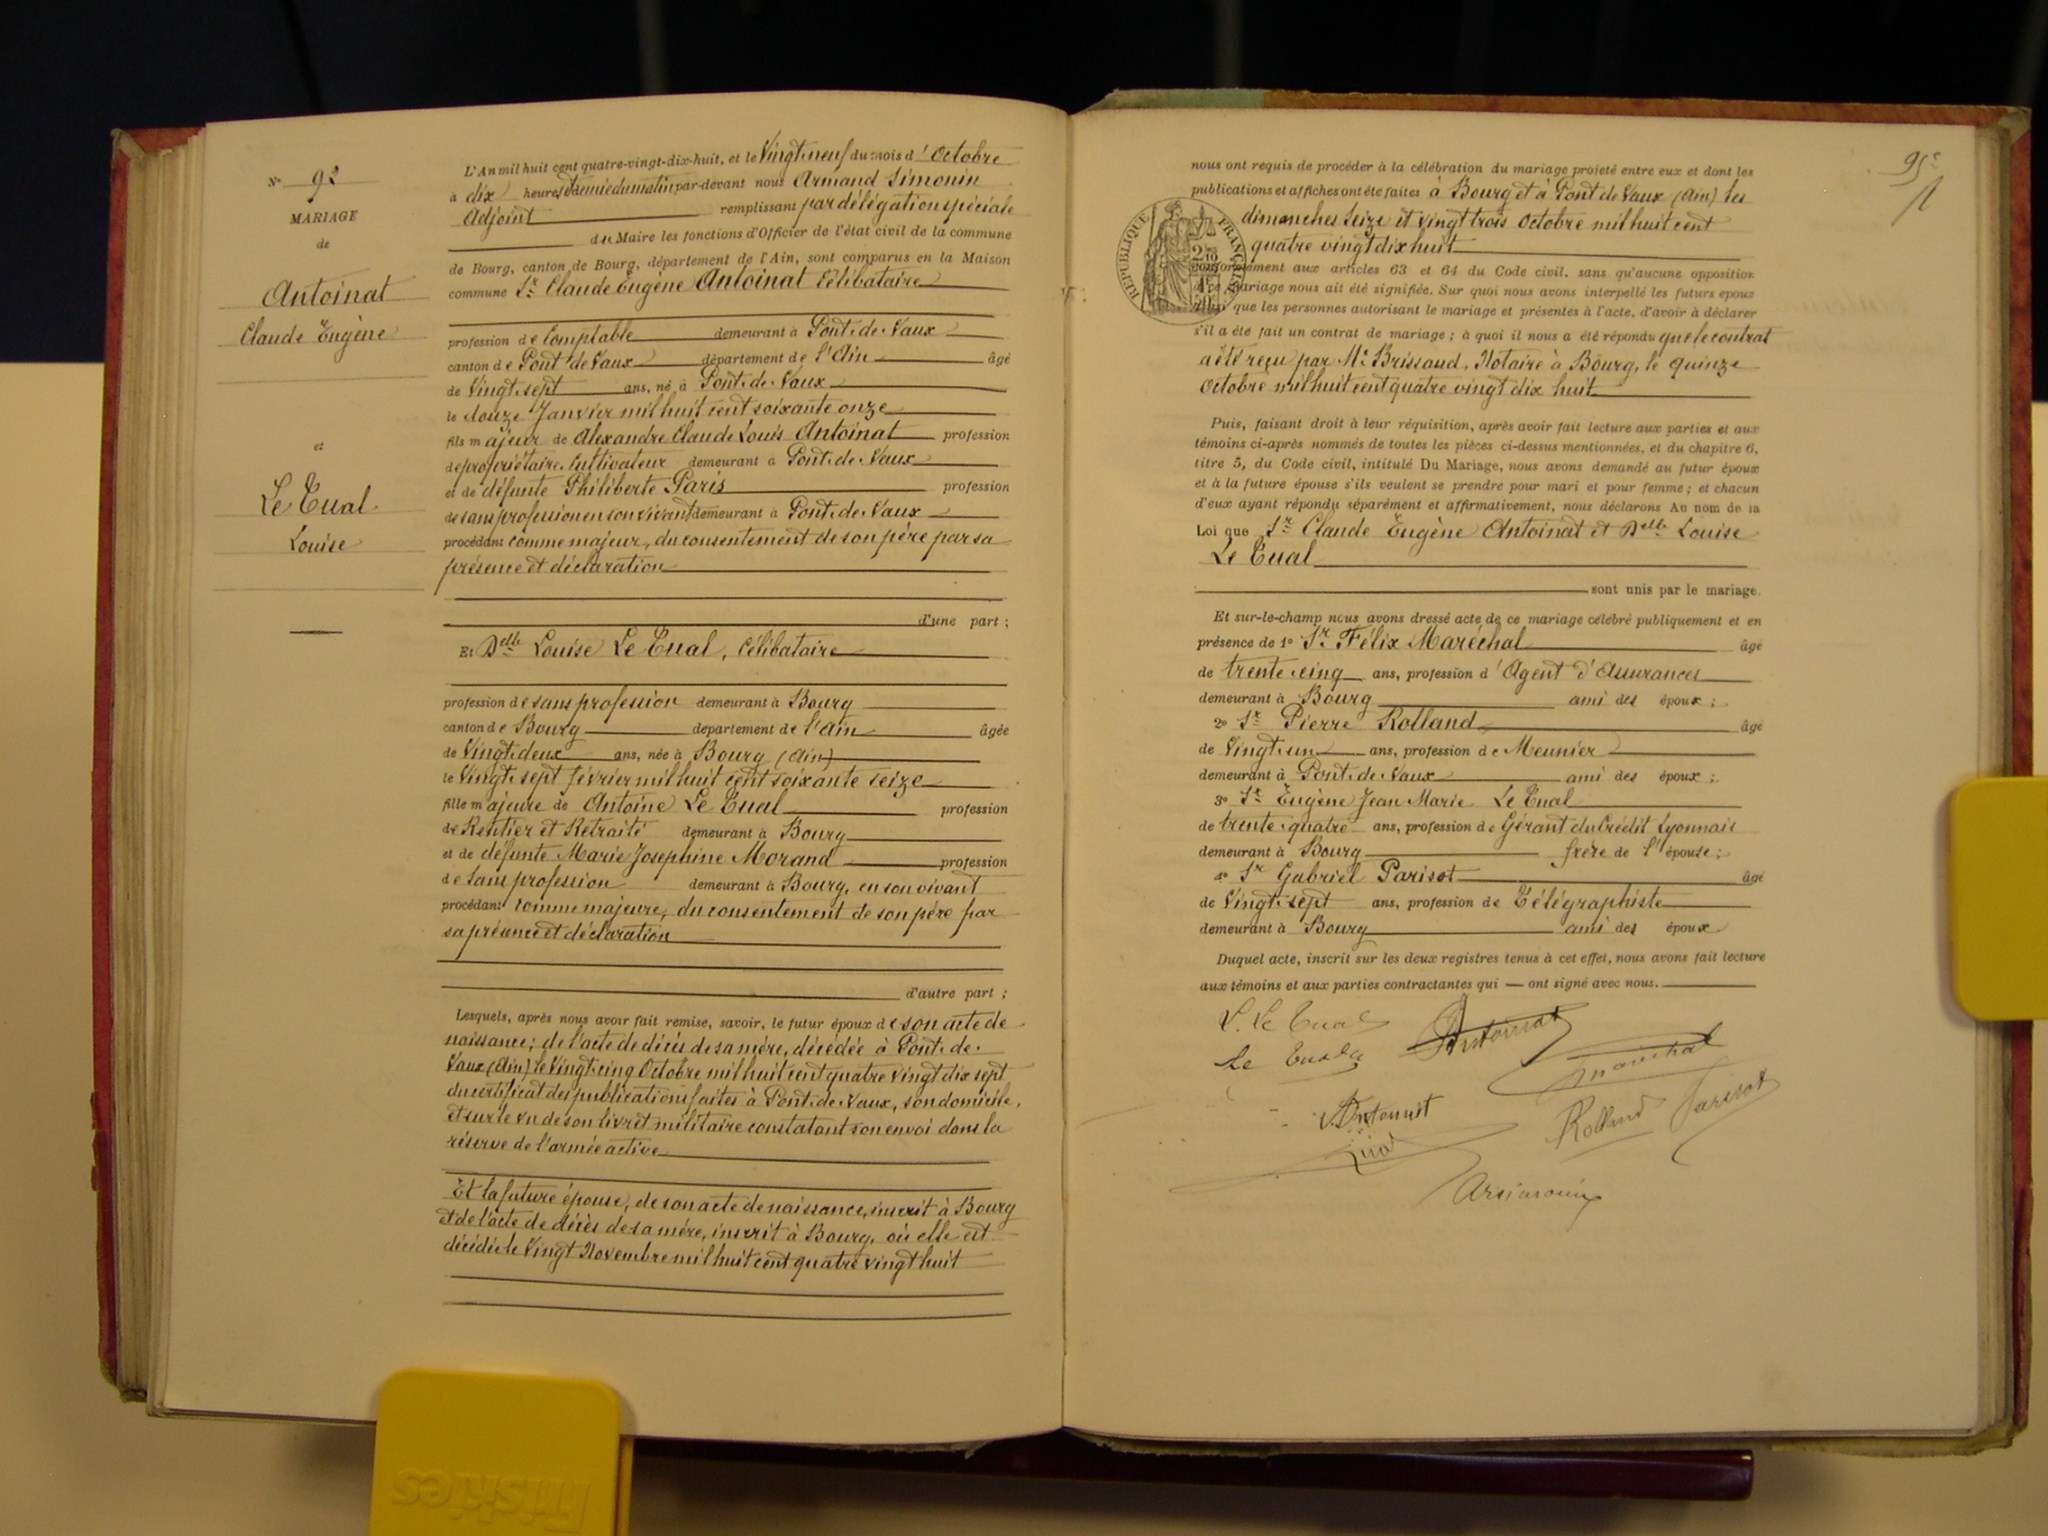 N° 92
MARIAGE
de
Antoinat
Claude Eugène
et
Le Tual
Louise
L'An mil huit cent quatre-vingt-dix-huit, et le Vingt neuf du mois d'Octobre
à dix heures et demie du matin par-devant nous Armand Simonin
Adjoint remplissant par délégation spéciale
du Maire les fonctions d'Officier de l'état civil de la commune
de Bourg, canton de Bourg, département de l'Ain, sont comparus en la Maison
commune Sr. Claude Eugène Antoinat Célibataire
profession de Comptable demeurant à Pont-de-Vaux
canton de Pont de Vaux département de l'Ain âgé
de Vingt-sept ans, né à Pont-de-Vaux
le douze Janvier mil huit cent soixante onze
fils majeur de Alexandre Claude Louis Antoinat profession
de propriétaire-Cultivateur demeurant à Pont-de-Vaux
et de défunte Philiberte Paris profession
de sans profession en son vivant demeurant à Pont-de-Vaux
procédant comme majeur, du consentement de son père par sa
présence et déclaration
d'une part ;
Et Delle Louise Le Tual, Célibataire
profession de sans profession demeurant à Bourg
canton de Bourg département de l'Ain âgée
de Vingt-deux ans, née à Bourg (Ain)
le Vingt-sept février mil huit cent soixante seize
fille majeure de Antoine Le Tual profession
de Rentier et Retraité demeurant à Bourg
et de défunte Marie Josephine Morand profession
de sans profession demeurant à Bourg, en son vivant
procédant comme majeure, du consentement de son père par
sa présence et déclaration
d'autre part ;
Lesquels, après nous avoir fait remise, savoir, le futur époux de son acte de
naissance ; de l'acte de décès de sa mère, décédée à Pont-de-
Vaux (Ain) le Vingt-cinq Octobre mil huit cent quatre vingt dix sept
du certificat des publications faites à Pont-de-Vaux, son domicile,
et sur le vu de son livret militaire constatant son envoi dans la
réserve de l'armée active
Et la future épouse, de son acte de naissance, inscrit à Bourg
et de l'acte de décès de sa mère, inscrit à Bourg, où elle est
décédée le Vingt Novembre mil huit cent quatre vingt huit
95e
nous ont requis de procéder à la célébration du mariage projeté entre eux et dont les
publications et affiches ont été faites à Bourg et à Pont de Vaux (Ain) les
dimanches seize et vingt trois Octobre mil huit cent
quatre vingt dix huit
RÉPUBLIQUE FRANÇAISE
conformément aux articles 63 et 64 du Code civil, sans qu'aucune opposition
mariage nous ait été signifiée. Sur quoi nous avons interpellé les futurs époux
que les personnes autorisant le mariage et présentes à l'acte, d'avoir à déclarer
s'il a été fait un contrat de mariage ; à quoi il nous a été répondu que le contrat
a été reçu par Me Brissaud, Notaire à Bourg, le quinze
Octobre mil huit cent quatre vingt dix huit
Puis, faisant droit à leur réquisition, après avoir fait lecture aux parties et aux
témoins ci-après nommés de toutes les pièces ci-dessus mentionnées, et du chapitre 6,
titre 5, du Code civil, intitulé Du Mariage, nous avons demandé au futur époux
et à la future épouse s'ils veulent se prendre pour mari et pour femme ; et chacun
d'eux ayant répondu séparément et affirmativement, nous déclarons Au nom de la
Loi que Sr. Claude Eugène Antoinat et Delle Louise
Le Tual
sont unis par le mariage.
Et sur-le-champ nous avons dressé acte de ce mariage célébré publiquement et en
présence de 1° Sr. Félix Maréchal âgé
de trente-cinq ans, profession d'Agent d'Assurances
demeurant à Bourg ami des époux ;
2° Sr Pierre Rolland âgé
de Vingt-un ans, profession de Meunier
demeurant à Pont-de-Vaux ami des époux ;
3° Sr Eugène Jean Marie Le Tual
de trente-quatre ans, profession de Gérant du Crédit Lyonnais
demeurant à Bourg frère de l'épouse ;
4° Sr Gabriel Parisot âgé
de Vingt-sept ans, profession de Télégraphiste
demeurant à Bourg ami des époux
Duquel acte, inscrit sur les deux registres tenus à cet effet, nous avons fait lecture
aux témoins et aux parties contractantes qui — ont signé avec nous.
L. Le Tual Antoinat
Le Tual Maréchal
Antoinat Rolland Parisot
Arsimonin
Friskies